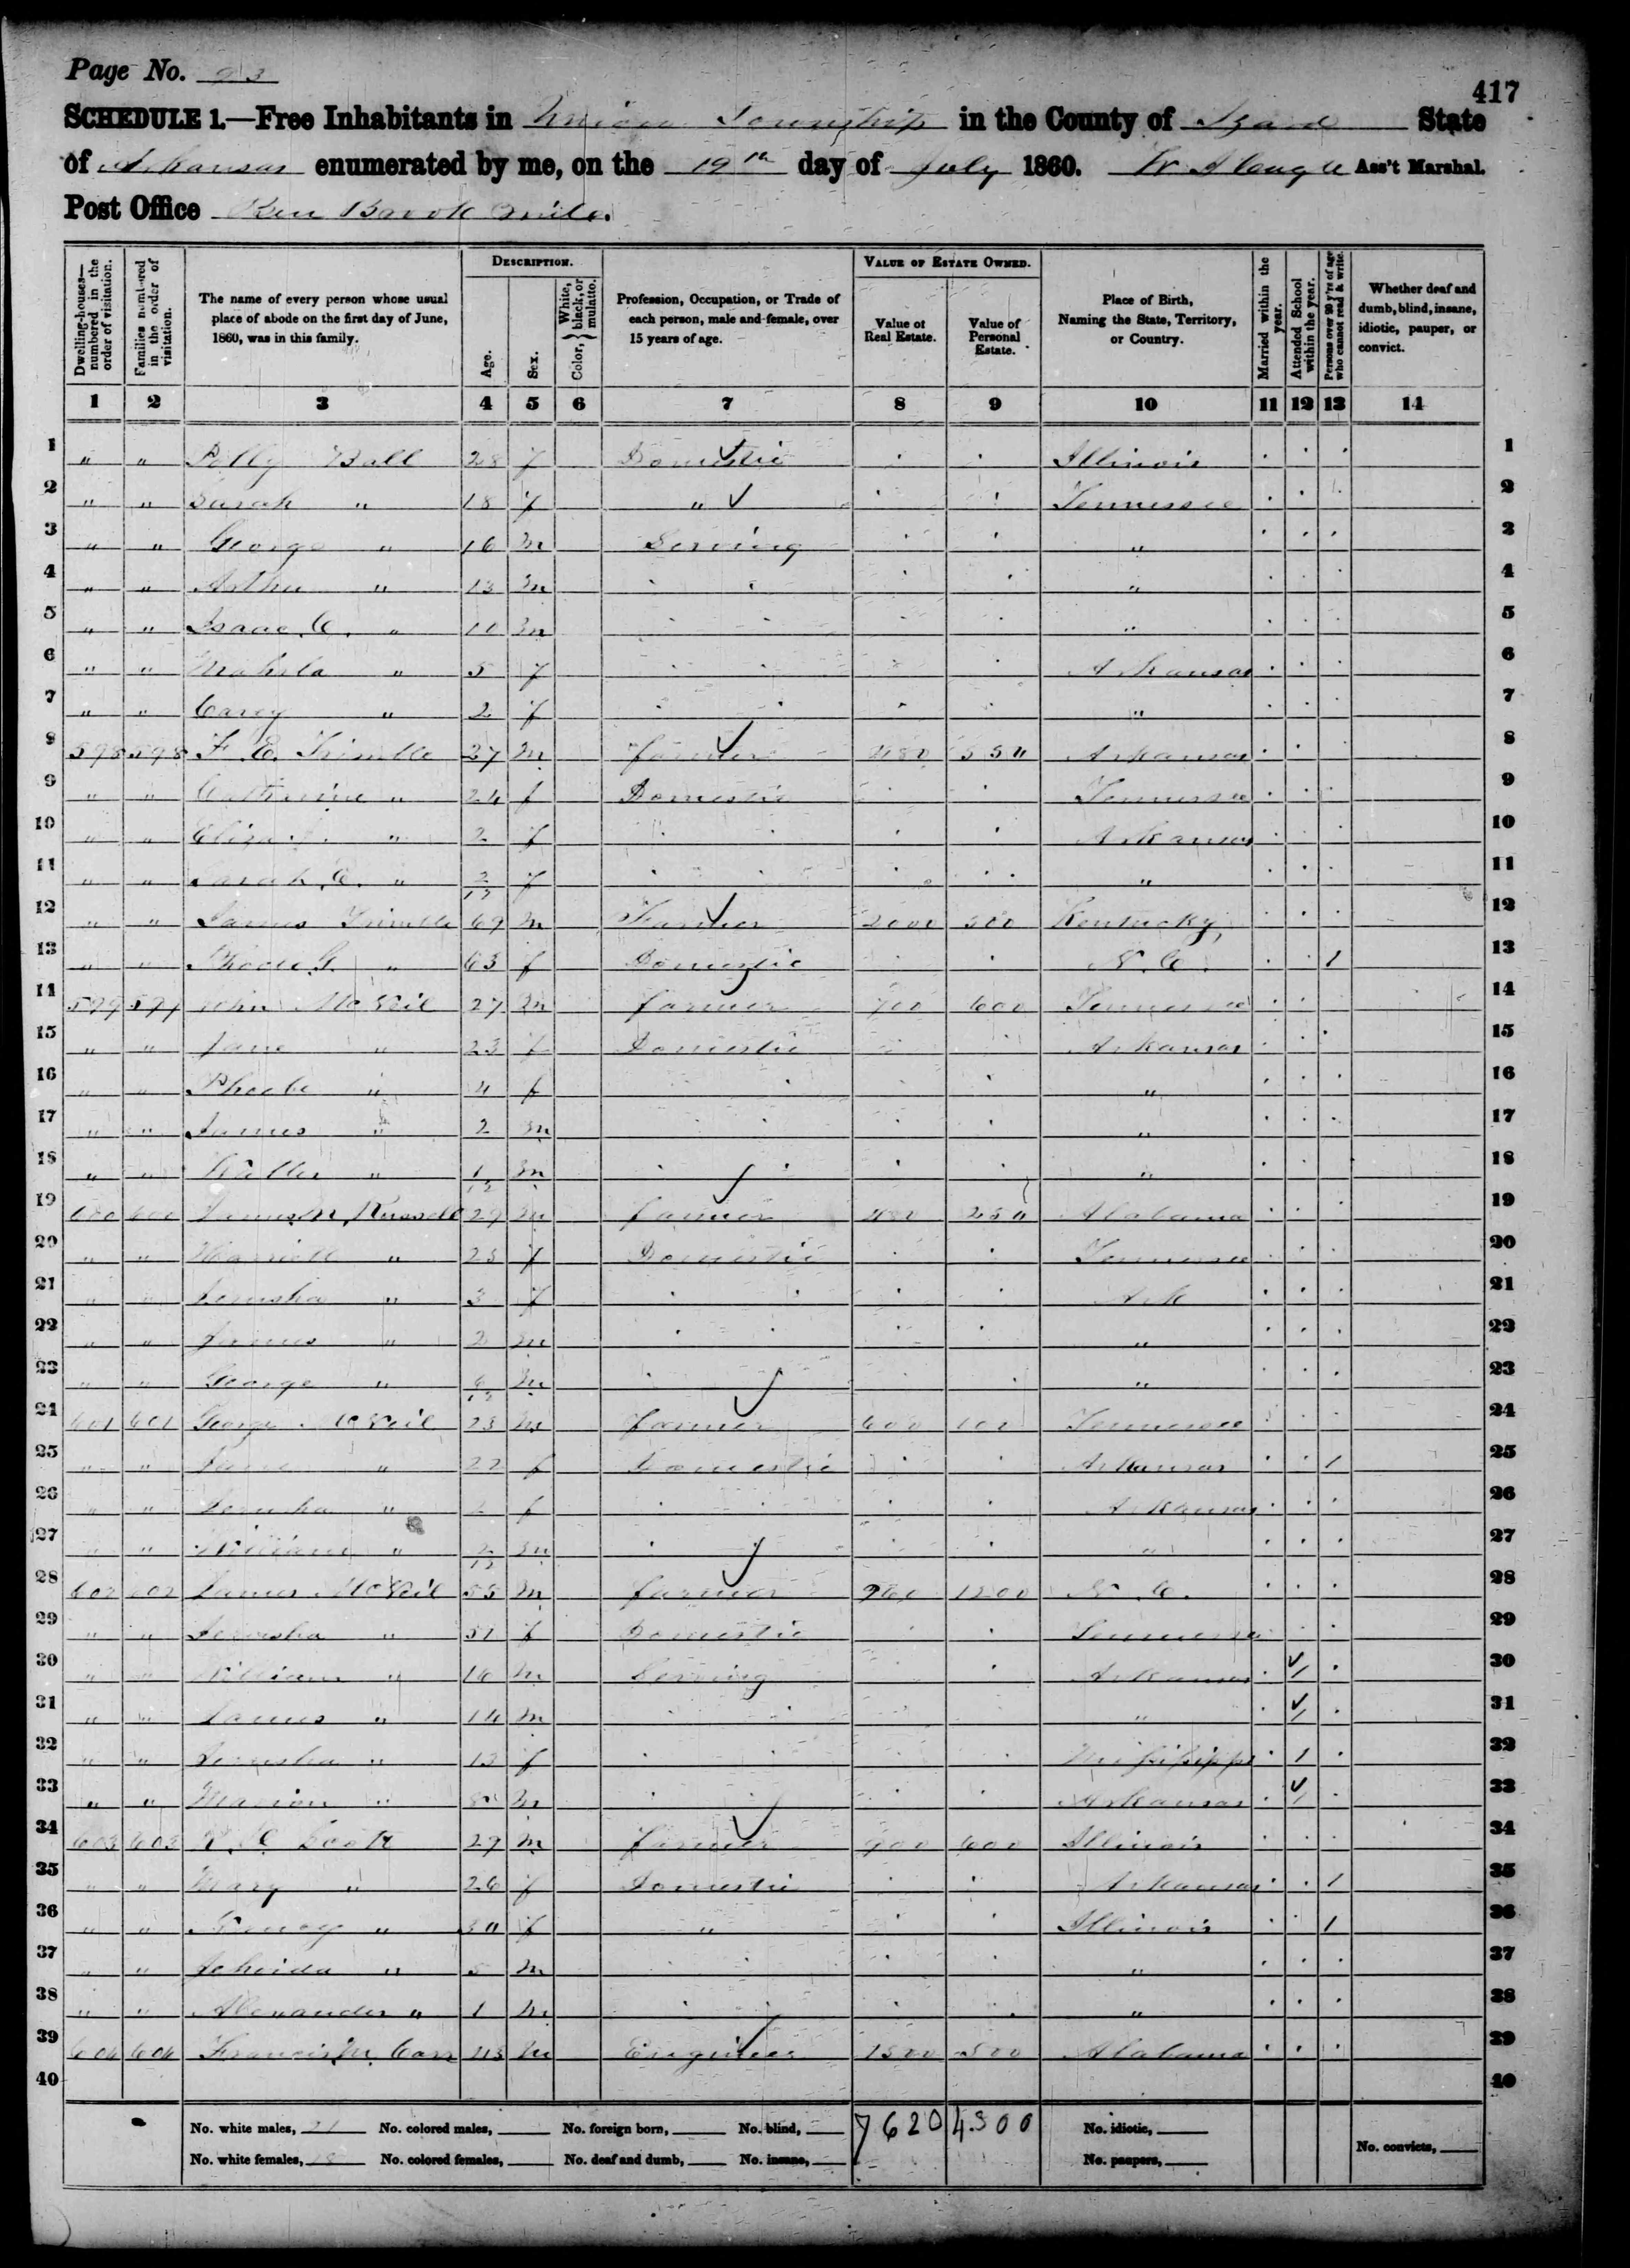 Page No. 93
417
SCHEDULE 1.—Free Inhabitants in Union Township in the County of Izard State
of Arkansas enumerated by me, on the 19th day of July 1860. Ass't Marshal.
Post Office
Dwelling-houses—numbered in the order of visitation.
Families numbered in the order of visitation.
The name of every person whose usual place of abode on the first day of June, 1860, was in this family.
DESCRIPTION.
Age.
Sex.
Color, { White, black, or mulatto.
Profession, Occupation, or Trade of each person, male and female, over 15 years of age.
VALUE OF ESTATE OWNED.
Value of Real Estate.
Value of Personal Estate.
Place of Birth, Naming the State, Territory, or Country.
Married within the year.
Attended School within the year.
Persons over 20 y'rs of age who cannot read & write.
Whether deaf and dumb, blind, insane, idiotic, pauper, or convict.
1 2 3 4 5 6 7 8 9 10 11 12 13 14
1 " " Polly Ball 28 f Domestic Illinois 1
2 " " Sarah " 18 f " Tennessee 2
3 " " George " 16 m Serving " 3
4 " " Arthur " 13 m " 4
5 " " Isaac C. " 10 m " 5
6 " " Mahala " 5 f Arkansas 6
7 " " Carey " 2 f " 7
8 598 598 F. C. Trimble 27 m farmer 480 550 Arkansas 8
9 " " Catherine " 24 f Domestic Tennessee 9
10 " " Eliza J. " 2 f Arkansas 10
11 " " Sarah C. " 2/12 f " 11
12 " " James Trimble 69 m Farmer 2000 500 Kentucky 12
13 " " " 63 f Domestic N. C. 1 13
14 599 599 John McNeil 27 m farmer 700 600 Tennessee 14
15 " " Jane " 23 f Domestic Arkansas 15
16 " " Phoebe " 4 f " 16
17 " " James " 2 m " 17
18 " " " 1/12 m " 18
19 600 600 James M. Russell 29 m farmer 480 250 Alabama 19
20 " " Harriett " 23 f Domestic Tennessee 20
21 " " Jerusha " 3 f Ark 21
22 " " James " 2 m " 22
23 " " George " 6/12 m " 23
24 601 601 George McNeil 23 m farmer 600 100 Tennessee 24
25 " " Jane " 22 f Domestic Arkansas 1 25
26 " " Jerusha " 2 f Arkansas 26
27 " " William " 2/12 m " 27
28 602 602 James McNeil 55 m farmer 960 1200 N. C. 28
29 " " Jerusha " 51 f Domestic Tennessee 29
30 " " William " 16 m Serving Arkansas 1 30
31 " " James " 14 m " 1 31
32 " " Jerusha " 13 f Mississippi 1 32
33 " " Marion " m Arkansas 1 33
34 603 603 Scott 29 m farmer 900 600 Illinois 34
35 " " Mary " 26 f Domestic Arkansas 1 35
36 " " Nancy " 30 f " Illinois 1 36
37 " " " 5 m " 37
38 " " Alexander " 1 m " 38
39 604 604 Francis M. Carr 43 m Engineer 1500 500 Alabama 39
40 40
No. white males, 21 No. colored males, No. foreign born, No. blind, 7620 4300 No. idiotic,
No. white females, 18 No. colored females, No. deaf and dumb, No. insane, No. paupers, No. convicts,